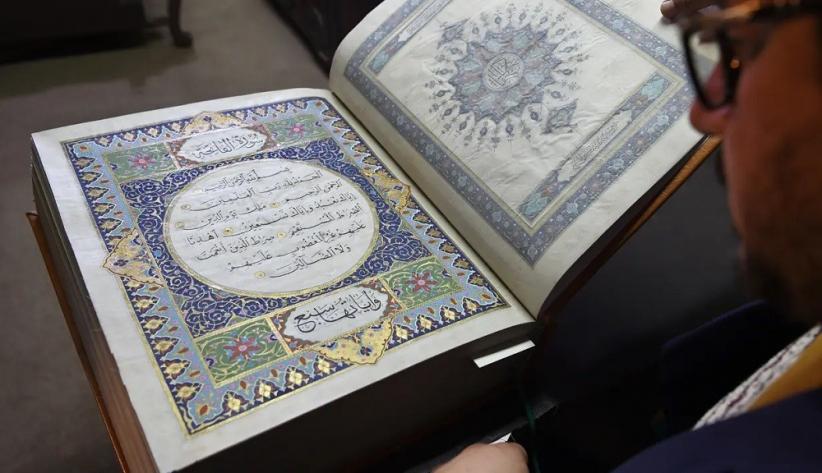 سورة الفاتحة
بسم الله الرحمن الرحيم
الحمد لله رب العالمين
الرحمن الرحيم ملك يوم الدين
إياك نعبد وإياك نستعين اهدنا
الصراط المستقيم صراط الذين أنعمت
عليهم غير المغضوب عليهم
ولا الضالين
وآياتها سبع